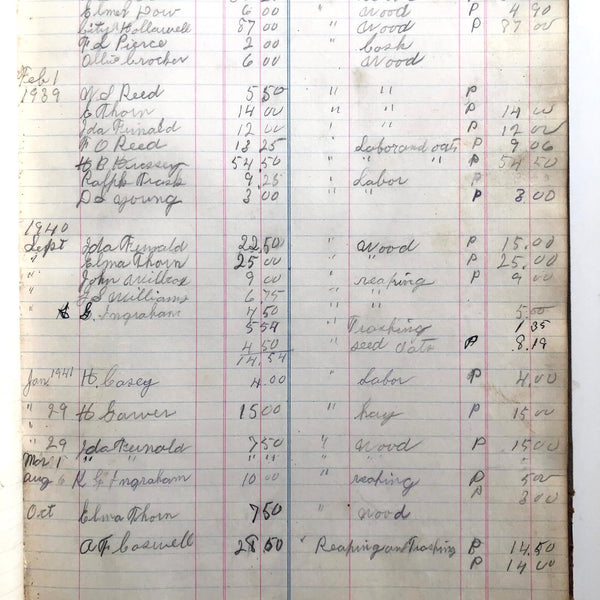 Elmer Dow 6 00 " wood P 4 90
City Hollawell 87 00 " wood P 87 00
F L Pierce 2 00 " cash
Ollie Crocker 6 00 wood
Feb 1
1939 N S Reed 5 50 " " P
E Thorn 14 00 " " P 14 00
Ida Funald 12 00 " " P 12 00
F O Reed 13 25 " Labor and oats P 9 06
H B Hussey 54.50 " " " P 54 50
Ralph Trask 9.25 " Labor P
D S Young 3 00 " " P 3.00
1940
Sept Ida Funald 22.50 " wood P 15.00
" Elma Thorn 25 00 " " P 25.00
" John Willcox 9 00 " reaping P 9 00
" J S Williams 6.75 " "
" S G. Ingraham 7.50 " 5.00
5 54 " Trashing 1 35
4 50 " seed oats P 8.19
14.54
Jan 1941 H. Casey 4.00 " Labor P 4.00
" 29 H Garver 15 00 " hay P 15 00
" 29 Ida Funald 7 50 " wood P 15 00
Mar 1 " " " "
Aug 6 K G Ingraham 10 00 " reaping P 5 00
P 3 00
Oct Elma Thorn 7 50 " wood
A F Caswell 28 50 " Reaping and Trashing P 14.50
P 14 00